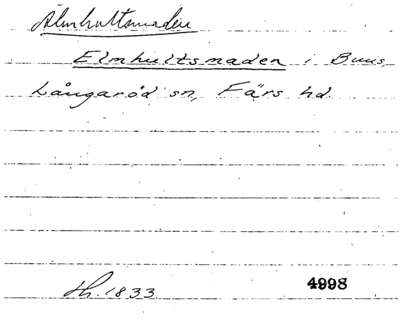 Älmhultsmaden
Elmhultsmaden i Buus,
Långaröd sn, Färs hd.
Th. 1833 4998